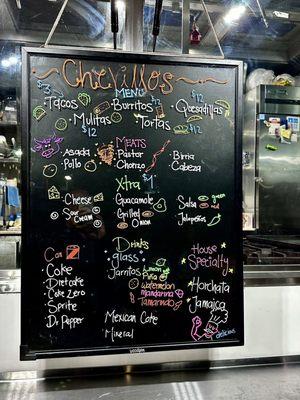 Chevillos
MENU
$3 Tacos
$12 Burritos
$12 Quesadillas
Mulitas $12
Tortas $12
MEATS
Asada
Pollo
Pastor
Chorizo
Birria
Cabeza
Xtra $1
Cheese
Sour Cream
Guacamole
Grilled Onion
Salsa
Jalapeños
Can
Coke
Diet coke
Coke Zero
Sprite
Dr Pepper
Drinks
glass
Jarritos
Limon
Piña
Watermelon
Mandarina
Tamarindo
Mexican Coke
Mineral
House Specialty
Horchata
Jamaica
delicious